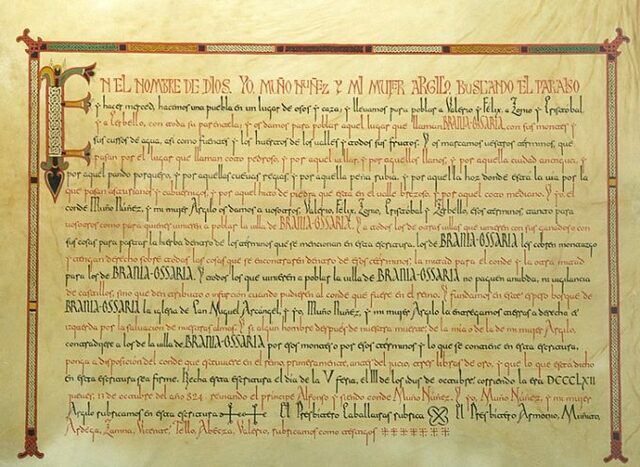 EN EL NOMBRE DE DIOS. YO, MUÑO NUÑEZ Y MI MUJER ARGILO, BUSCANDO EL PARAISO
y hacer merced, hacemos una puebla en un lugar de osos y caza, y llevamos para poblar a Valerio y Félix, a Zonio y Cristóbal,
y Cerbello, con toda su parentela; y os damos para poblar aquel lugar que llaman BRANIA-OSSARIA, con sus montes y
sus cursos de agua, así como fuentes y los huertos de los valles y todos sus frutos. Y os marcamos vuestros términos, que
pasan por el lugar que llaman coto pedroso, y por aquel villar, y por aquellos llanos, y por aquella ciudad antigua, y
por aquel pando porquero, y por aquellas cuevas regias, y por aquella peña rubia, y por aquella hoz donde está la vía por la
que pasan asturianos y cabuernigos, y por aquel hito de piedra que está en el valle brezoso, y por aquel coto mediano. Y yo, el
conde Muño Núñez, y mi mujer Argilo os damos a vosotros, Valerio, Félix, Zonio, Cristóbal y Zerbello, esos términos, tanto para
vosotros como para quienes vinieren a poblar la villa de BRANIA-OSSARIA. Y a todos los de otras villas que vinieren con sus ganados o
sus cosas para pastar la hierba dentro de los términos que se mencionan en esta escritura, los de BRANIA-OSSARIA les cobren montazgo
y tengan derecho sobre todas las cosas que se encontraren dentro de esos términos: la mitad para el conde y la otra mitad
para los de BRANIA-OSSARIA. Y todos los que vinieren a poblar la villa de BRANIA-OSSARIA no paguen anubda, ni vigilancia
de castillos, sino que den tributo o infurción cuanto pudieren al conde que fuere en el reino. Y fundamos en este áspero bosque de
BRANIA-OSSARIA la iglesia de San Miguel Arcángel, y yo, Muño Núñez, y mi mujer Argilo la entregamos tierras a derecha e
izquierda por la salvación de nuestras almas. Y si algún hombre después de nuestra muerte, de la mía o de la de mi mujer Argilo,
contradijere a los de la villa de BRANIA-OSSARIA por esos montes o por esos términos y lo que se contiene en esta escritura,
ponga a disposición del conde que estuviere en el reino, primeramente, antes del juicio, tres libras de oro, y que lo que está dicho
en esta escritura sea firme. Hecha esta escritura el día de la V feria, el III de los idus de octubre, corriendo la era DCCCLXII
jueves, 13 de octubre del año 824, reinando el príncipe Alfonso y siendo conde Muño Núñez. Y yo, Muño Núñez, y mi mujer
Argilo rubricamos en esta escritura. El Presbítero Caballarias rubrica El Presbítero Armonio, Munato,
Ardega, Zamna, Vicente, Tello, Abecza, Valerio, rubricamos como testigos